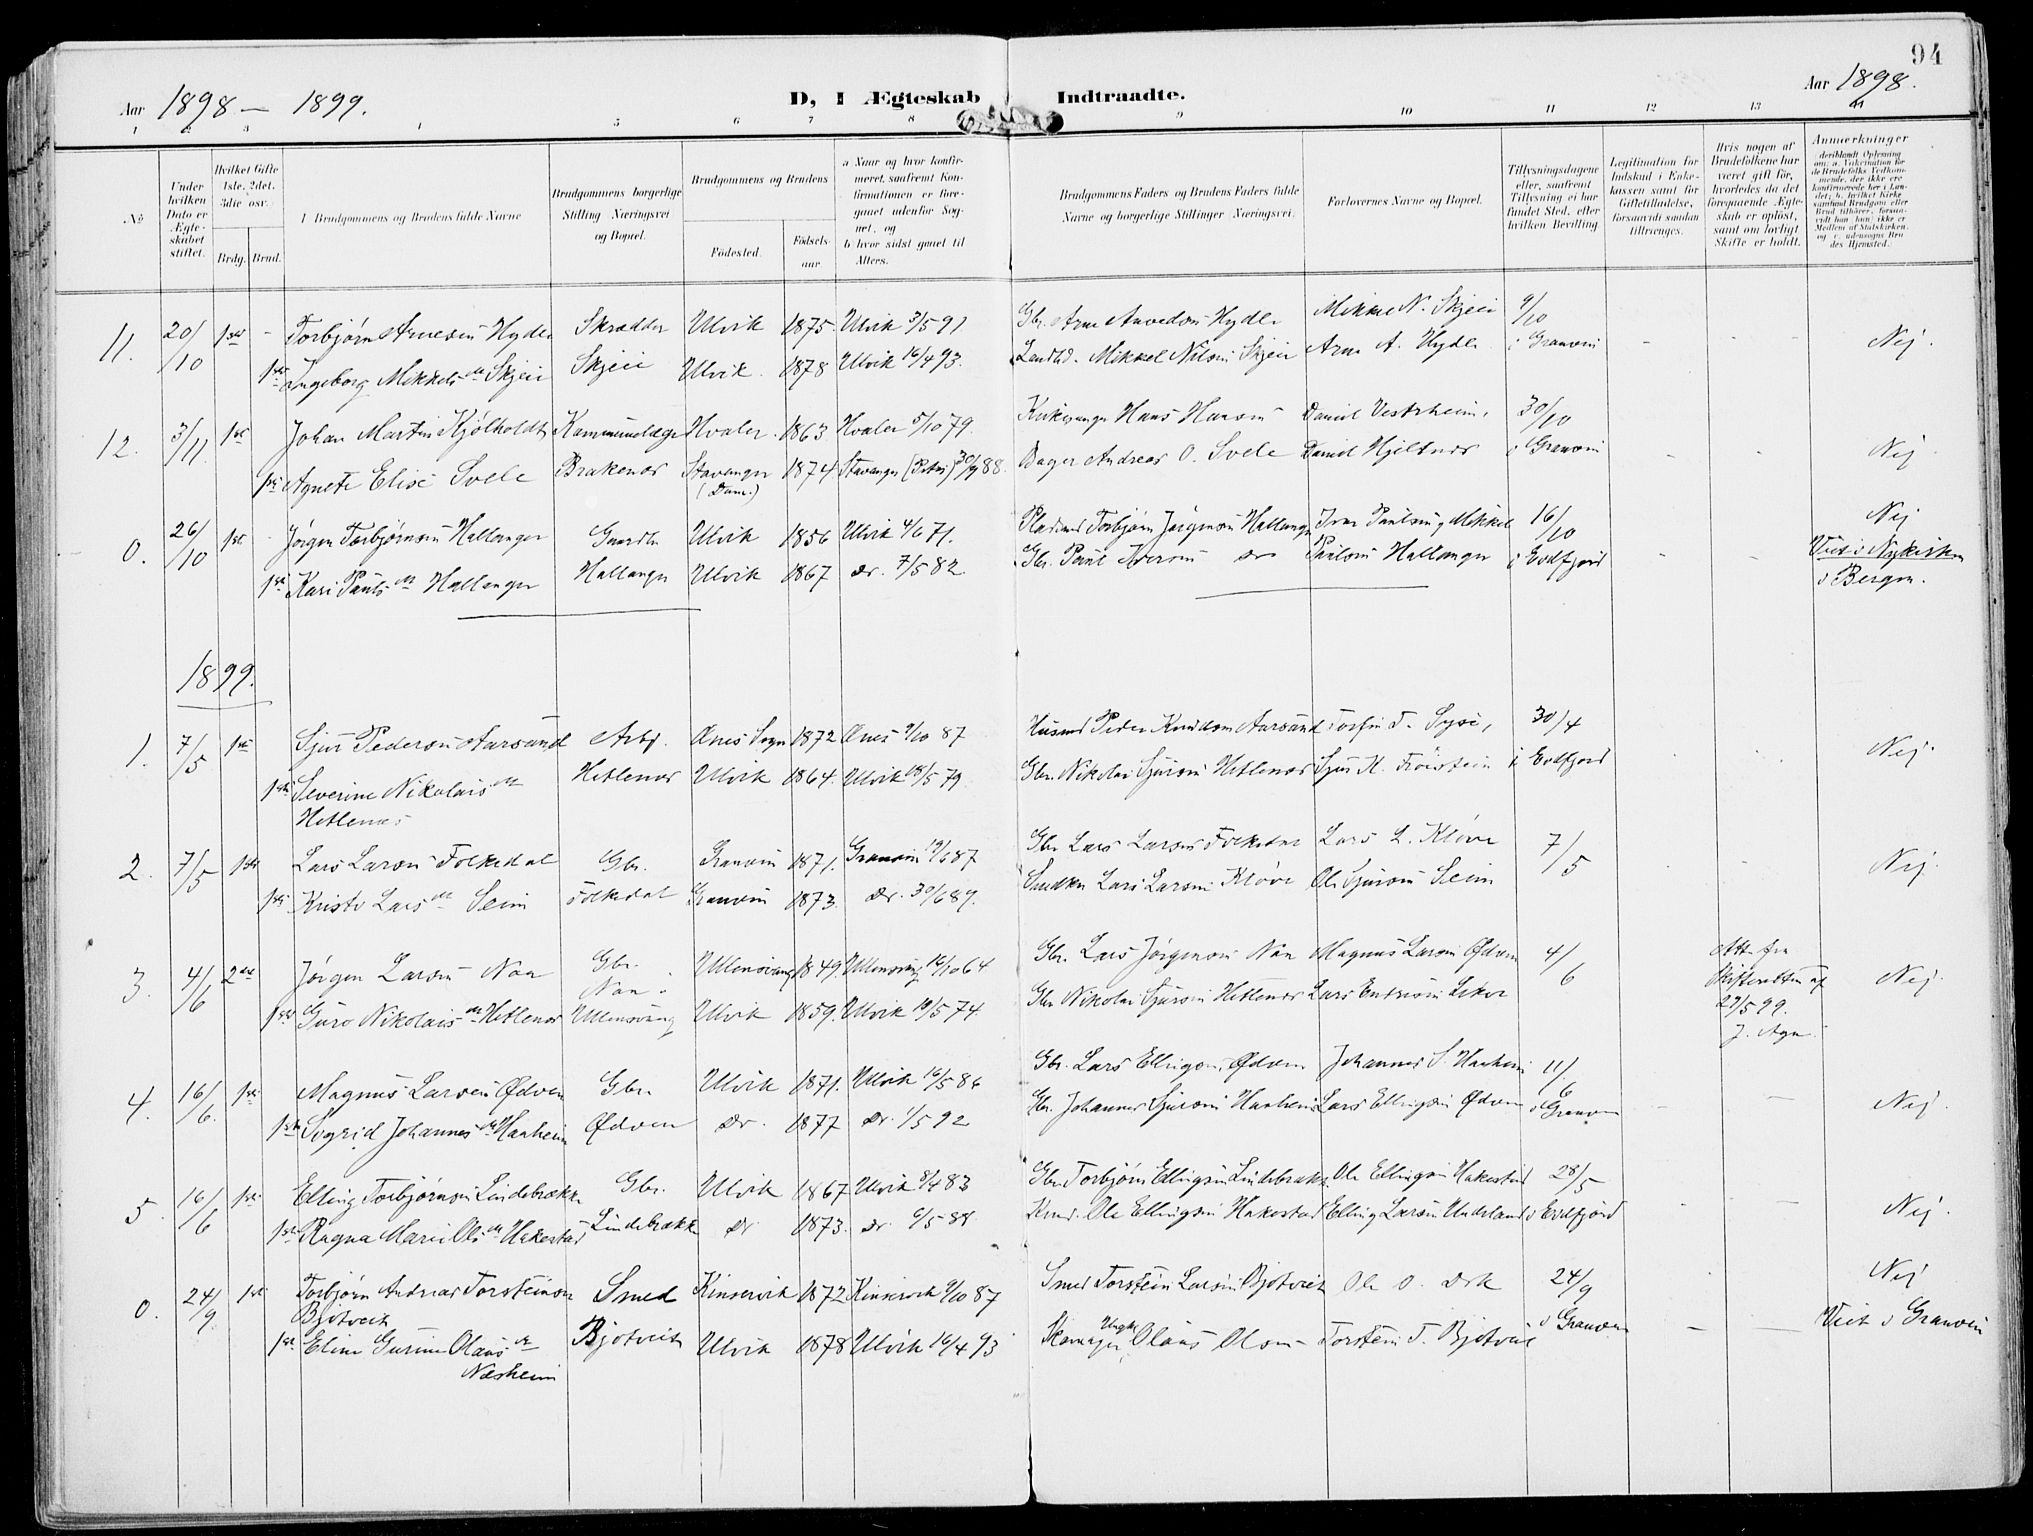 94
Aar 1898 – 1899.
D, I Ægteskab Indtraadte.
Aar 1898.
1 2 3 4 5 6 7 8 9 10 11 12 13 14
№
Under hvilken Dato er Ægteskabet stiftet.
Hvilket Gifte 1ste, 2det, 3die osv.
Brdg. Brud.
I Brudgommens og Brudens fulde Navne
Brudgommens borgerlige Stilling Næringsvei og Bopæl.
Brudgommens og Brudens
Fødested.
Fødselsaar.
a Naar og hvor konfirmeret, saafremt Konfirmationen er foregaaet udenfor Sognet, og
b hvor sidst gaaet til Alters.
Brudgommens Faders og Brudens Faders fulde Navne og borgerlige Stillinger Næringsvei.
Forlovernes Navne og Bopæl.
Tillysningsdagene eller, saafremt Tillysning ei har fundet Sted, efter hvilken Bevilling
Legitimation for Indskud i Enkekassen samt for Giftetilladelse, forsaavidt saadan tiltrænges.
Hvis nogen af Brudefolkene har været gift før, hvorledes da det foregaaende Ægteskab er opløst, samt om lovligt Skifte er holdt.
Anmærkninger
11. 20/10 1ste - Torbjørn Arnesen Hydle Skrædder Ulvik 1875. Ulvik 3/5 91 Gbr. Arne Hydle Mikkel N. Skjeie 9/10
1ste Ingeborg Mikkelsdr Skjeie Skjeie Ulvik. 1878 Ulvik 16/4 93. Mikkel Nilsen Skjeie Arne A. Hydle i Granvin - - Nej.
12. 3/11 1ste Johan Martin Kjølholdt Kommunelæge Hvaler. 1863. Hvaler 5/10 79. Kirkesanger Hans Hansen Daniel Vestrheim, 30/10
1ste Agnete Elise Svele Brakenes Stavanger (Dom.) 1874 Stavanger (Petri) 30/9 88. Bager Andreas O. Svele Daniel Hjeltnes i Granvin Nej
0. 26/10 1ste Jørgen Torbjørnsen Hallanger Gaardbr. Ulvik 1856 Ulvik 4/6 71. Torbjørn Jørgensen Hallanger Ivar Paulsen, Mikkel 16/10 Nej
1ste Kari Paulsdr Hallanger Hallanger Ulvik 1867 do. 7/5 82 Gbr. Paul Iversen do Paulsen Hallanger i Eidfjord - - Viet i Nykirken i Bergen.
1899.
1. 7/5 1ste Sjur Pedersen Aarsand Arb. Ænes Sogn 1872 Ænes 9/10 87 Husmd Peder Knudsen Aarsand Torfin T. Syse, 30/4
1ste Severine Nikolaisdr Hetlenes Hetlenes Ulvik 1864. Ulvik 18/5 79. Gbr. Nikolai Sjursen Hetlenes Sjur H. Frøistein i Eidfjord Nej.
2. 7/5 1ste Lars Larsen Folkedal Gbr. Granvin 1871. Granvin 19/6 87 Gbr. Lars Larsen Folkedal Lars L. Kløve 7/5
1ste Kristi Larsdr Seim Folkedal Granvin 1873. do. 30/6 89. Lars Larsen Kløve Ole Sjursen Seim Nej.
3. 4/6 2den Jørgen Larsen Naa Gbr. Naa. Ullensvang 1849. Ullensvang 16/10 64 Gbr. Lars Jørgensen Naa Magnus Larsen Ødven 4/6 Att. fra Skifteretten af 27/5 99. Nej.
1ste Guro Nikolaisdr Hetlenes Ullensvang Ulvik 1859. Ulvik 10/5 74. Gbr Nikolai Sjursen Hetlenes Lars
4. 16/6. 1ste Magnus Larsen Ødven Gbr. Ulvik 1871. Ulvik 16/5 86 Gbr. Lars Ellingsen Ødven Johannes S. Haaheim 11/6
1ste Sygrid Johannesdr Haaheim Ødven do. 1877 do. 1/5 92 Gbr. Johannes Sjursen Haaheim Lars Ellingsen Ødven i Granvin - - Nej.
5. 16/6 1ste Elling Torbjørnsen Lindebrække Gbr. Ulvik 1867 Ulvik 8/4 83 Gbr Torbjørn Ellingsen Lindebrække Ole Ellingsen Hakestad 28/5
1ste Ragna Marie Olsdr Hakestad Lindebrække do 1873. do. 6/5 88 Ole Ellingsen Hakestad Elling Larsen Underland i Eidfjord - - Nej.
0. 24/9. 1ste Torbjørn Andreas Torsteinsen Bjotveit Smed Kinservik 1872 Kinservik 9/10 87 Smed Torstein Larsen Bjotveit Ole O. 24/9 Nej
1ste Eline Gurine Olausdr Næsheim Bjotveit Ulvik 1878 Ulvik 16/4 93 Skomager Olaus Olsen Torstein T. Bjotveit i Granvin - - Viet i Granvin